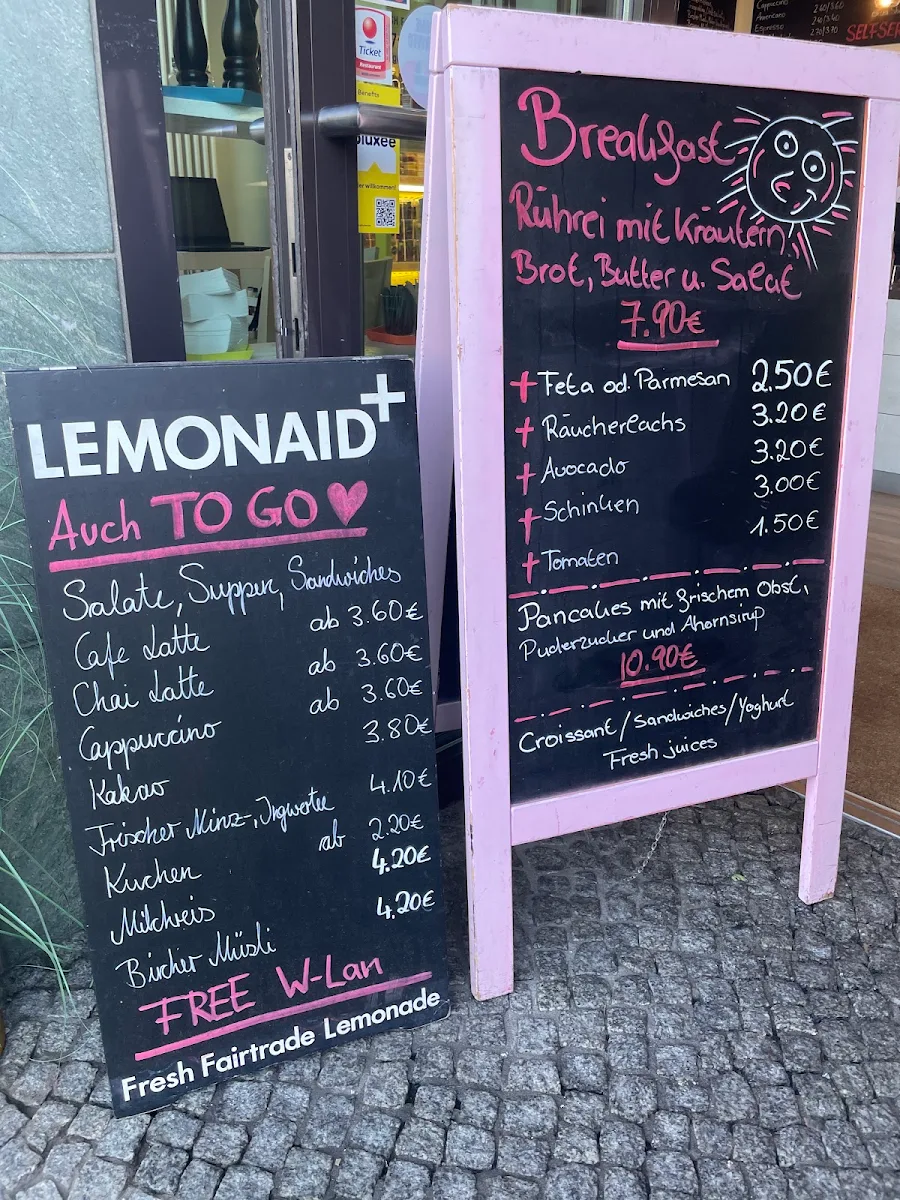 LEMONAID+
Auch TO GO
Salate, Suppen, Sandwiches
Cafe Latte ab 3.60€
Chai Latte ab 3.60€
Cappuccino ab 3.60€
Kakao 3.80€
Frischer Minz-, Ingwertee 4.10€
Kuchen ab 2.20€
Milchreis 4.20€
Bircher Müsli 4.20€
FREE W-Lan
Fresh Fairtrade Lemonade
Breakfast
Rührei mit Kräutern,
Brot, Butter u. Salat
7.90€
+ Feta od. Parmesan 2.50€
+ Räucherlachs 3.20€
+ Avocado 3.20€
+ Schinken 3.00€
+ Tomaten 1.50€
Pancakes mit frischem Obst,
Puderzucker und Ahornsirup
10.90€
Croissant/Sandwiches/Yoghurt
Fresh juices
Ticket
Restaurant
Benefits
pluxee
er willkommen!
Cappuccino
Americano
Espresso
SELFSER